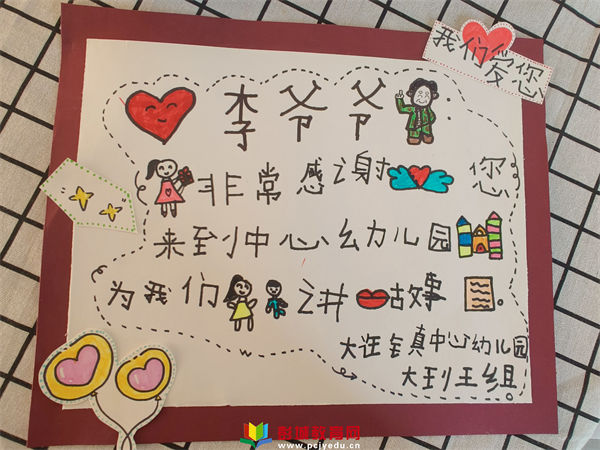 我们爱您
李爷爷
非常感谢您
来到中心幼儿园
为我们讲故事。
大许镇中心幼儿园
大班组
彭城教育网
www.pcjyedu.cn